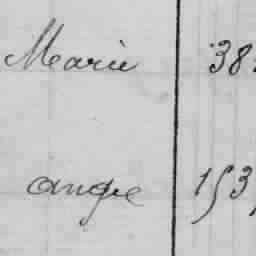 Marie 38
ange 153